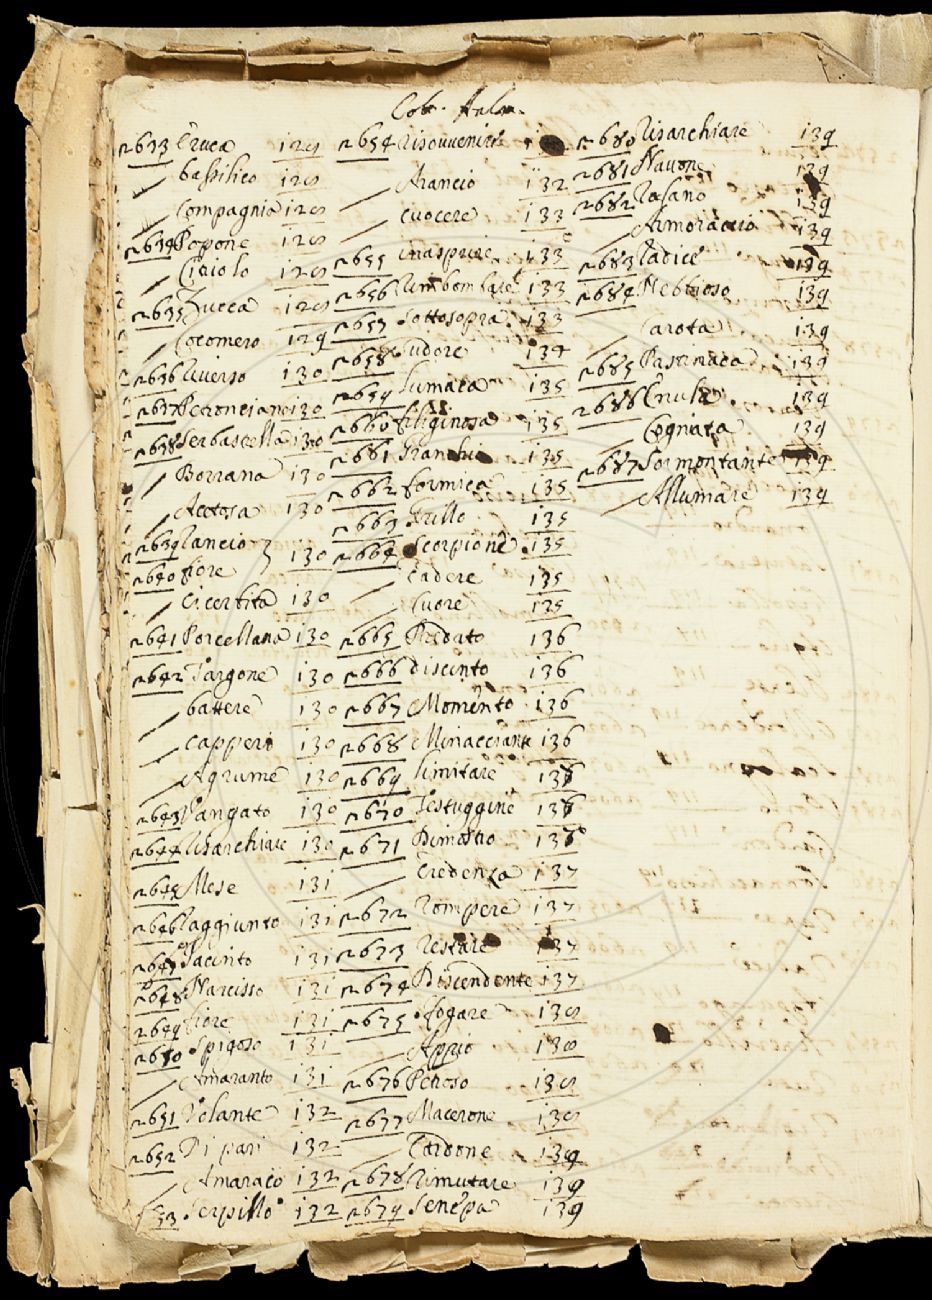 Col. Aula.
n633 Eruca 129
bassilico 129
Compagnia 129
n634 Popone 129
Citiolo 129
n635 Zucca 129
Cocomero 129
n636 Riverso 130
n637 Petronciano 130
n638 Serbastella 130
Borrana 130
Acetosa 130
n639 Rancio } 130
n640 fiore
Cicerbita 130
n641 Porcellana 130
n642 Targone 130
battere 130
Capperi 130
Agrume 130
n643 Vangato 130
n644 Risarchiare 130
n645 Mese 131
n646 Raggiunto 131
n647 Jacinto 131
n648 Narcisso 131
n649 fiore 131
n650 Spigoso 131
Amaranto 131
n651 Volante 132
n652 Di pari 132
Amaraco 132
653 Serpillo 132
n654 Risovvenire
Arancio 132
Cuocere 133
n655 inasprire 133
n656 Rimbombare 133
n657 Sottosopra 133
n658 Sudore 134
n659 Lumaca 135
n660 filiginosa 135
n661 Granchio 135
n662 formica 135
n663 Grillo 135
n664 Scorpione 135
Cadere 135
Cuore 135
n665 Predato 136
n666 Discinto 136
n667 Momento 136
n668 Minacciante 136
n669 Limitare 136
n670 Testuggine 136
n671 Dimostro 136
Credenza 137
n672 Rompere 137
n673 Restare 137
n674 Discendente 137
n675 Sfogare 138
Appio 138
n676 Petroso 138
n677 Macerone 138
Cardone 139
n678 Rimutare 139
n679 Senepa 139
n680 Risarchiare 139
n681 Navone 139
n682 Rafano 139
Armoraccio 139
n683 Radice 139
n684 Nebbioso 139
Carota 139
n685 Pastinaca 139
n686 Enula 139
Cognata 139
n687 Sormontante 139
Allumare 139